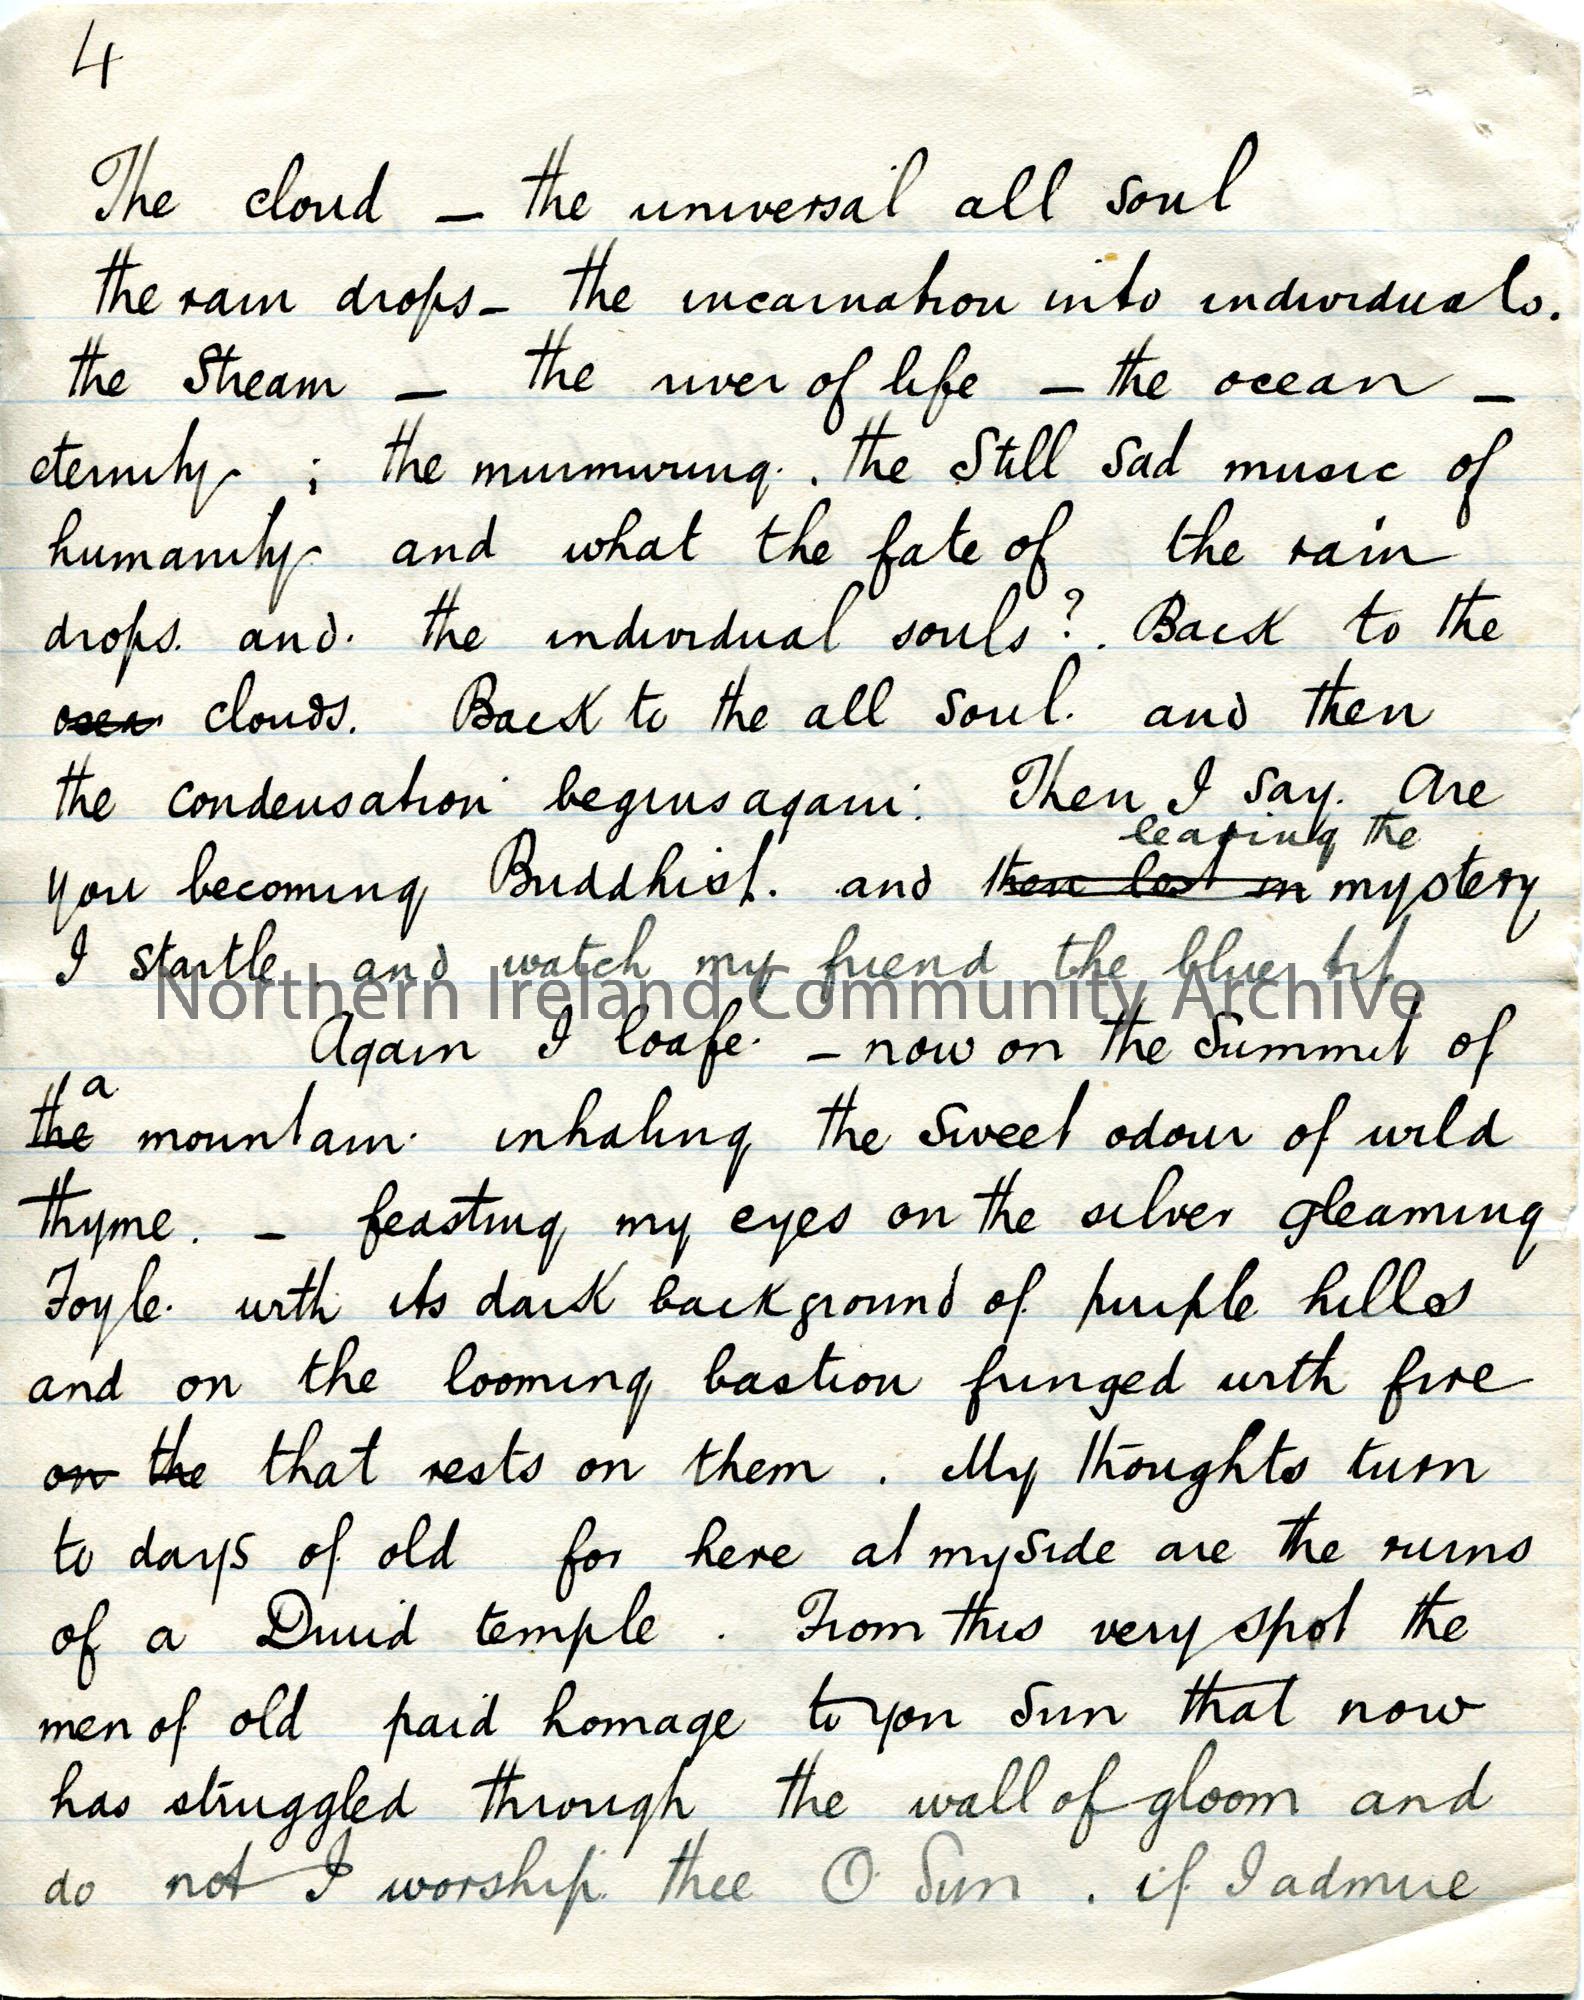 4
The cloud – the universal all soul
the rain drops – the incarnation into individuals.
the Stream – the river of life – the ocean –
eternity ; the murmuring . the Still Sad music of
humanity and what the fate of the rain
drops. and. the individual souls ? . Back to the
ocea clouds. Back to the all soul. and then
the condensation begins again. Then I say. Are
leaving the
you becoming Buddhist. and then lost in mystery
I startle and watch my friend the blue tit
Northern Ireland Community Archive
Again I loafe. – now on the Summit of
a
the mountain. inhaling the sweet odour of wild
thyme. – feasting my eyes on the silver gleaming
Foyle. with its dark background of purple hills
and on the looming bastion fringed with fire
on the that rests on them . My thoughts turn
to days of old for here at my side are the ruins
of a Druid temple . From this very spot the
men of old paid homage to yon Sun that now
has struggled through the wall of gloom and
do not I worship thee O Sun . if I admire